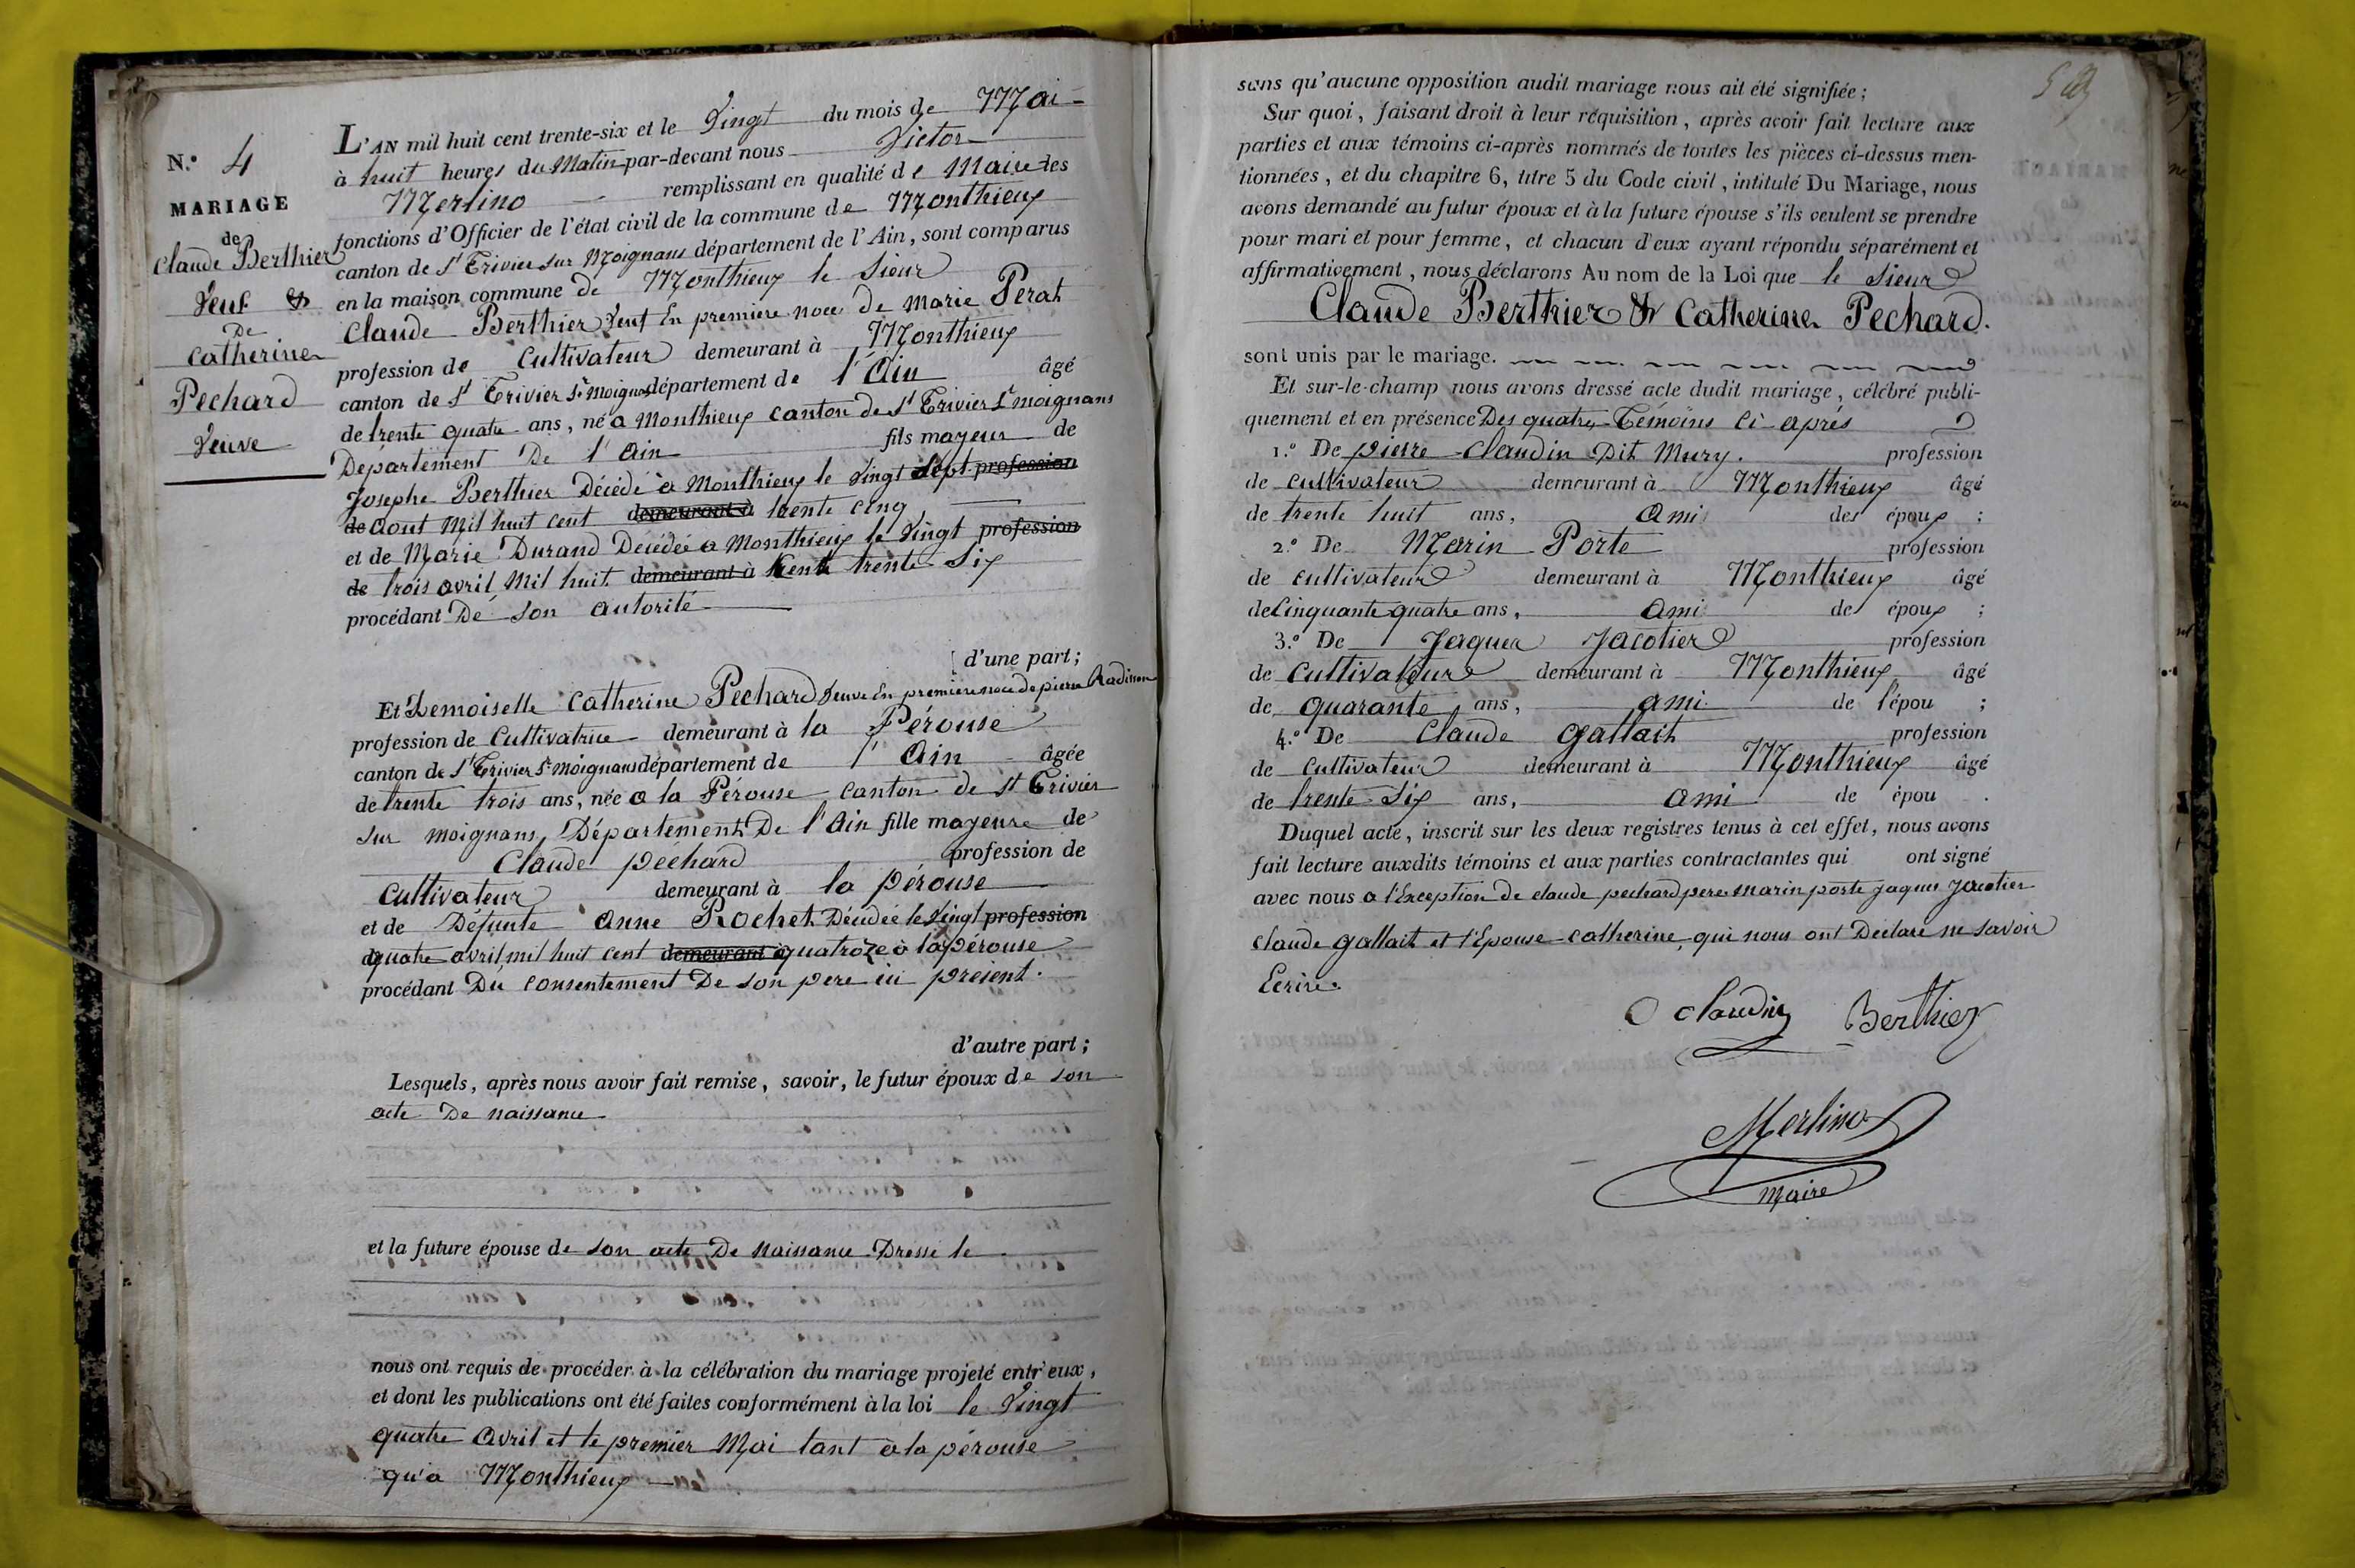 N.° 4
MARIAGE
de
Claude Berthier
Veuf &
De
Catherine
Pechard
Veuve
L'AN mil huit cent trente-six et le Vingt du mois de Mai
à huit heures du Matin par-devant nous Victor
Merlino remplissant en qualité de Maire les
fonctions d'Officier de l'état civil de la commune de Monthieux
canton de St Trivier sur Moignans département de l'Ain, sont comparus
en la maison commune de Monthieux le Sieur
Claude Berthier Veuf En premiere noce de Marie Perat
profession de Cultivateur demeurant à Monthieux
canton de St Trivier Sr Moignans département de l'Ain âgé
de trente quatre ans, né a Monthieux canton de St Trivier Sr moignans
Département De l'Ain fils mayeur de
Josephe Berthier Décédé a Monthieux le Vingt Sept profession
de Aout Mil huit cent demeurant à trente cinq
et de Marie Durand Décédée a Monthieux le Vingt profession
de trois avril Mil huit demeurant à Cent trente Six
procédant De son autorité
d'une part;
Et Demoiselle Catherine Pechard Veuve En premiere noce de pierre Radisson
profession de Cultivatrice demeurant à la Pérouse
canton de St Trivier Sr Moignans département de l'Ain âgée
de trente trois ans, née a la Pérouse canton de St Trivier
sur moignans, Département De l'Ain fille mayeure de
Claude péchard profession de
Cultivateur demeurant à la pérouse
et de Défunte Anne Rochet Décédée le Vingt profession
quatre avril mil huit cent demeurant à quatroze à la pérouse
procédant Du consentement De son pere ici present.
d'autre part;
Lesquels, après nous avoir fait remise, savoir, le futur époux de son
acte De naissance
et la future épouse de son acte De naissance Dressé le
nous ont requis de procéder à la célébration du mariage projeté entr'eux,
et dont les publications ont été faites conformément à la loi le Vingt
quatre Avril et le premier Mai tant à la pérouse
qu'a Monthieux
sans qu'aucune opposition audit mariage nous ait été signifiée;
Sur quoi, faisant droit à leur réquisition, après avoir fait lecture aux
parties et aux témoins ci-après nommés de toutes les pièces ci-dessus men-
tionnées, et du chapitre 6, titre 5 du Code civil, intitulé Du Mariage, nous
avons demandé au futur époux et à la future épouse s'ils veulent se prendre
pour mari et pour femme, et chacun d'eux ayant répondu séparément et
affirmativement, nous déclarons Au nom de la Loi que le Sieur
Claude Berthier & Catherine Pechard.
sont unis par le mariage.
Et sur-le-champ nous avons dressé acte dudit mariage, célébré publi-
quement et en présence Des quatre Témoins Ci-aprés
1.° De pierre Claudin Dit Mury. profession
de cultivateur demeurant à Monthieux âgé
de trente huit ans, Ami des époux ;
2.° De Marin Porte profession
de cultivateur demeurant à Monthieux âgé
de Cinquante quatre ans, Ami de époux ;
3.° De Jaques Jacotier profession
de Cultivateur demeurant à Monthieux âgé
de quarante ans, ami de l'épou ;
4.° De Claude Gallait profession
de Cultivateur demeurant à Monthieux âgé
de trente Six ans, Ami de épou .
Duquel acte, inscrit sur les deux registres tenus à cet effet, nous avons
fait lecture auxdits témoins et aux parties contractantes qui ont signé
avec nous a l'Exception De claude pechard pere Marin porte Jaques Jacotier
Claude gallait et l'Epouse Catherine, qui nous ont Déclaré ne savoir
Ecrire.
Claudin Berthier
Merlino
Maire